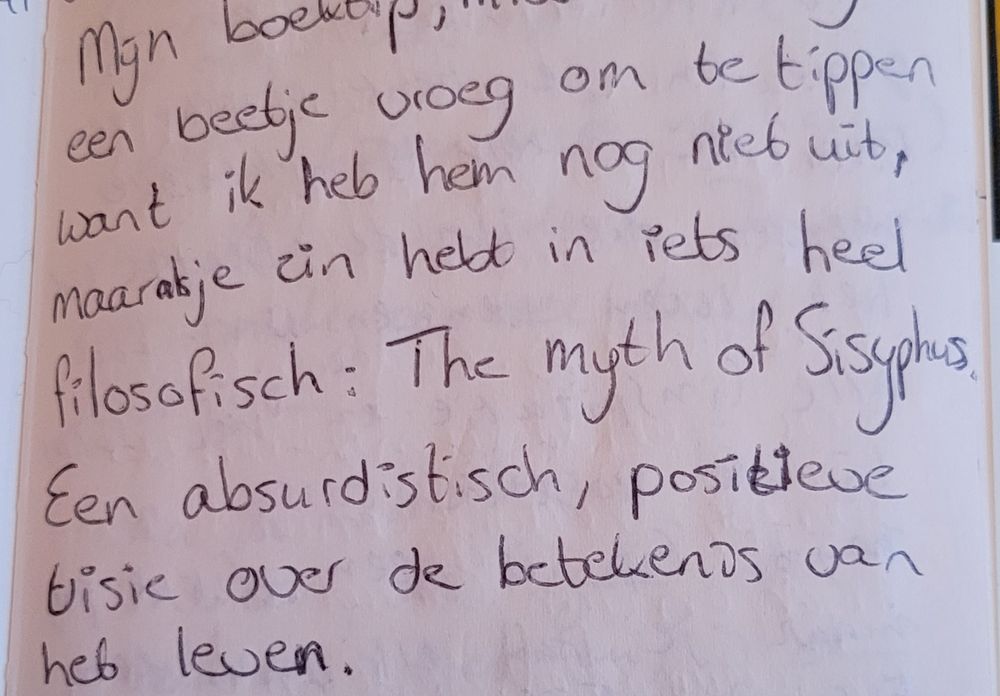 Mijn boektip,
een beetje vroeg om te tippen
want ik heb hem nog niet uit,
maar als je zin hebt in iets heel
filosofisch: The myth of Sisyphus.
Een absurdistisch, positieve
visie over de betekenis van
het leven.